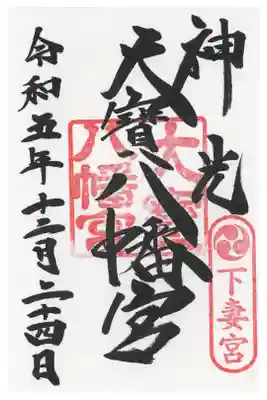 神光
大寶八幡宮
令和五年十二月二十四日
大寶
八幡宮
下妻宮